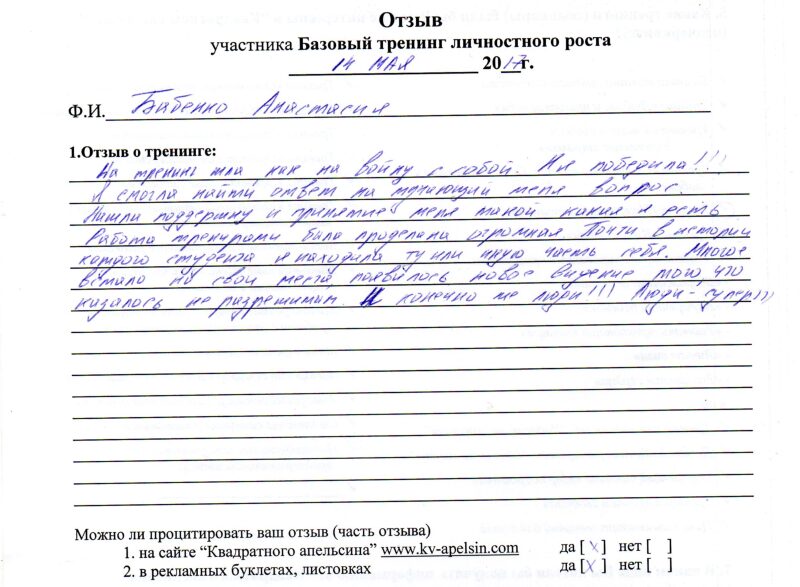 Отзыв
участника Базовый тренинг личностного роста
14 мая 2017г.
Ф.И. Бабенко Анастасия
1.Отзыв о тренинге:
На тренинг шла, как на войну с собой. Не победила!!!
Я смогла найти ответ на мучающий меня вопрос.
Нашли поддержку и принятие меня такой какая я есть
Работа тренерами была проделана огромная. Почти в истории
каждого студента я находила ту или иную часть себя. Многое
встало на свои места, появилось новое видение того, что
казалось не разрешимым. И конечно же люди!!! Люди - супер)))
Можно ли процитировать ваш отзыв (часть отзыва)
1. на сайте “Квадратного апельсина” www.kv-apelsin.com да [ x ] нет [ ]
2. в рекламных буклетах, листовках да [ x ] нет [ ]